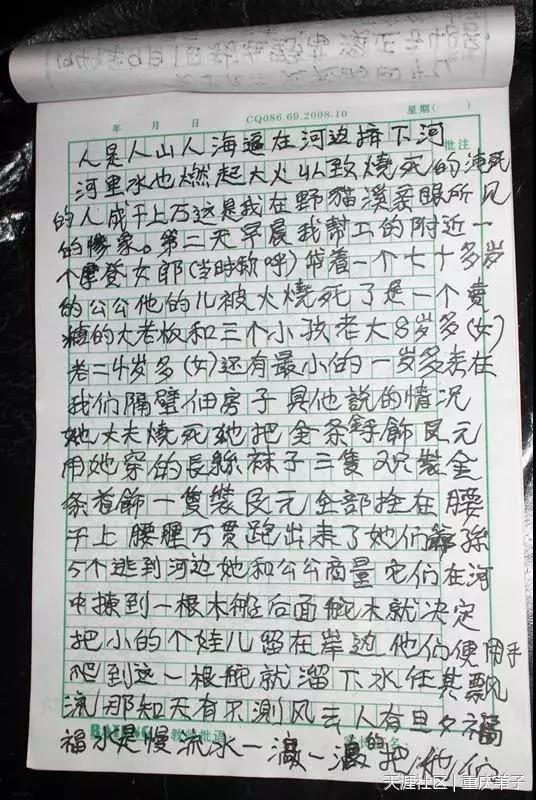 年 月 日 CQ086.69.2008.10 星期( )
人是人山人海逼在河边擠下河
批注
河里水也燃起大火以致燒死的淹死
的人成千上万这是我在野猫溪亲眼所见
的惨象。第二天早晨我幫工的附近一
个摩登女郎(当时称呼)带着一个七十多岁
的公公他的儿被火燒死了是一个賣
糖的大老板和三个小孩老大8岁多(女)
老二4岁多(女)还有最小的一岁多表在
我们隔壁佃房子具他説的情况
她丈夫燒死她把金条首飾艮元
用她穿的長絲袜子三隻 双裝金
条首飾一隻裝艮元全部拴在腰
干上腰腥万贯跑出来了她们爺孫
5个逃到河边她和公公商量它们在河
中揀到一根木船后面舵木就决定
把小的个娃儿留在岸边他们便用手
爬到这一根舵就溜下水任其飘
流那知天有不測风云人有旦夕禍
福水是慢流水一灏一灏的把他们
教师批语
天涯社区 | 重庆崽子